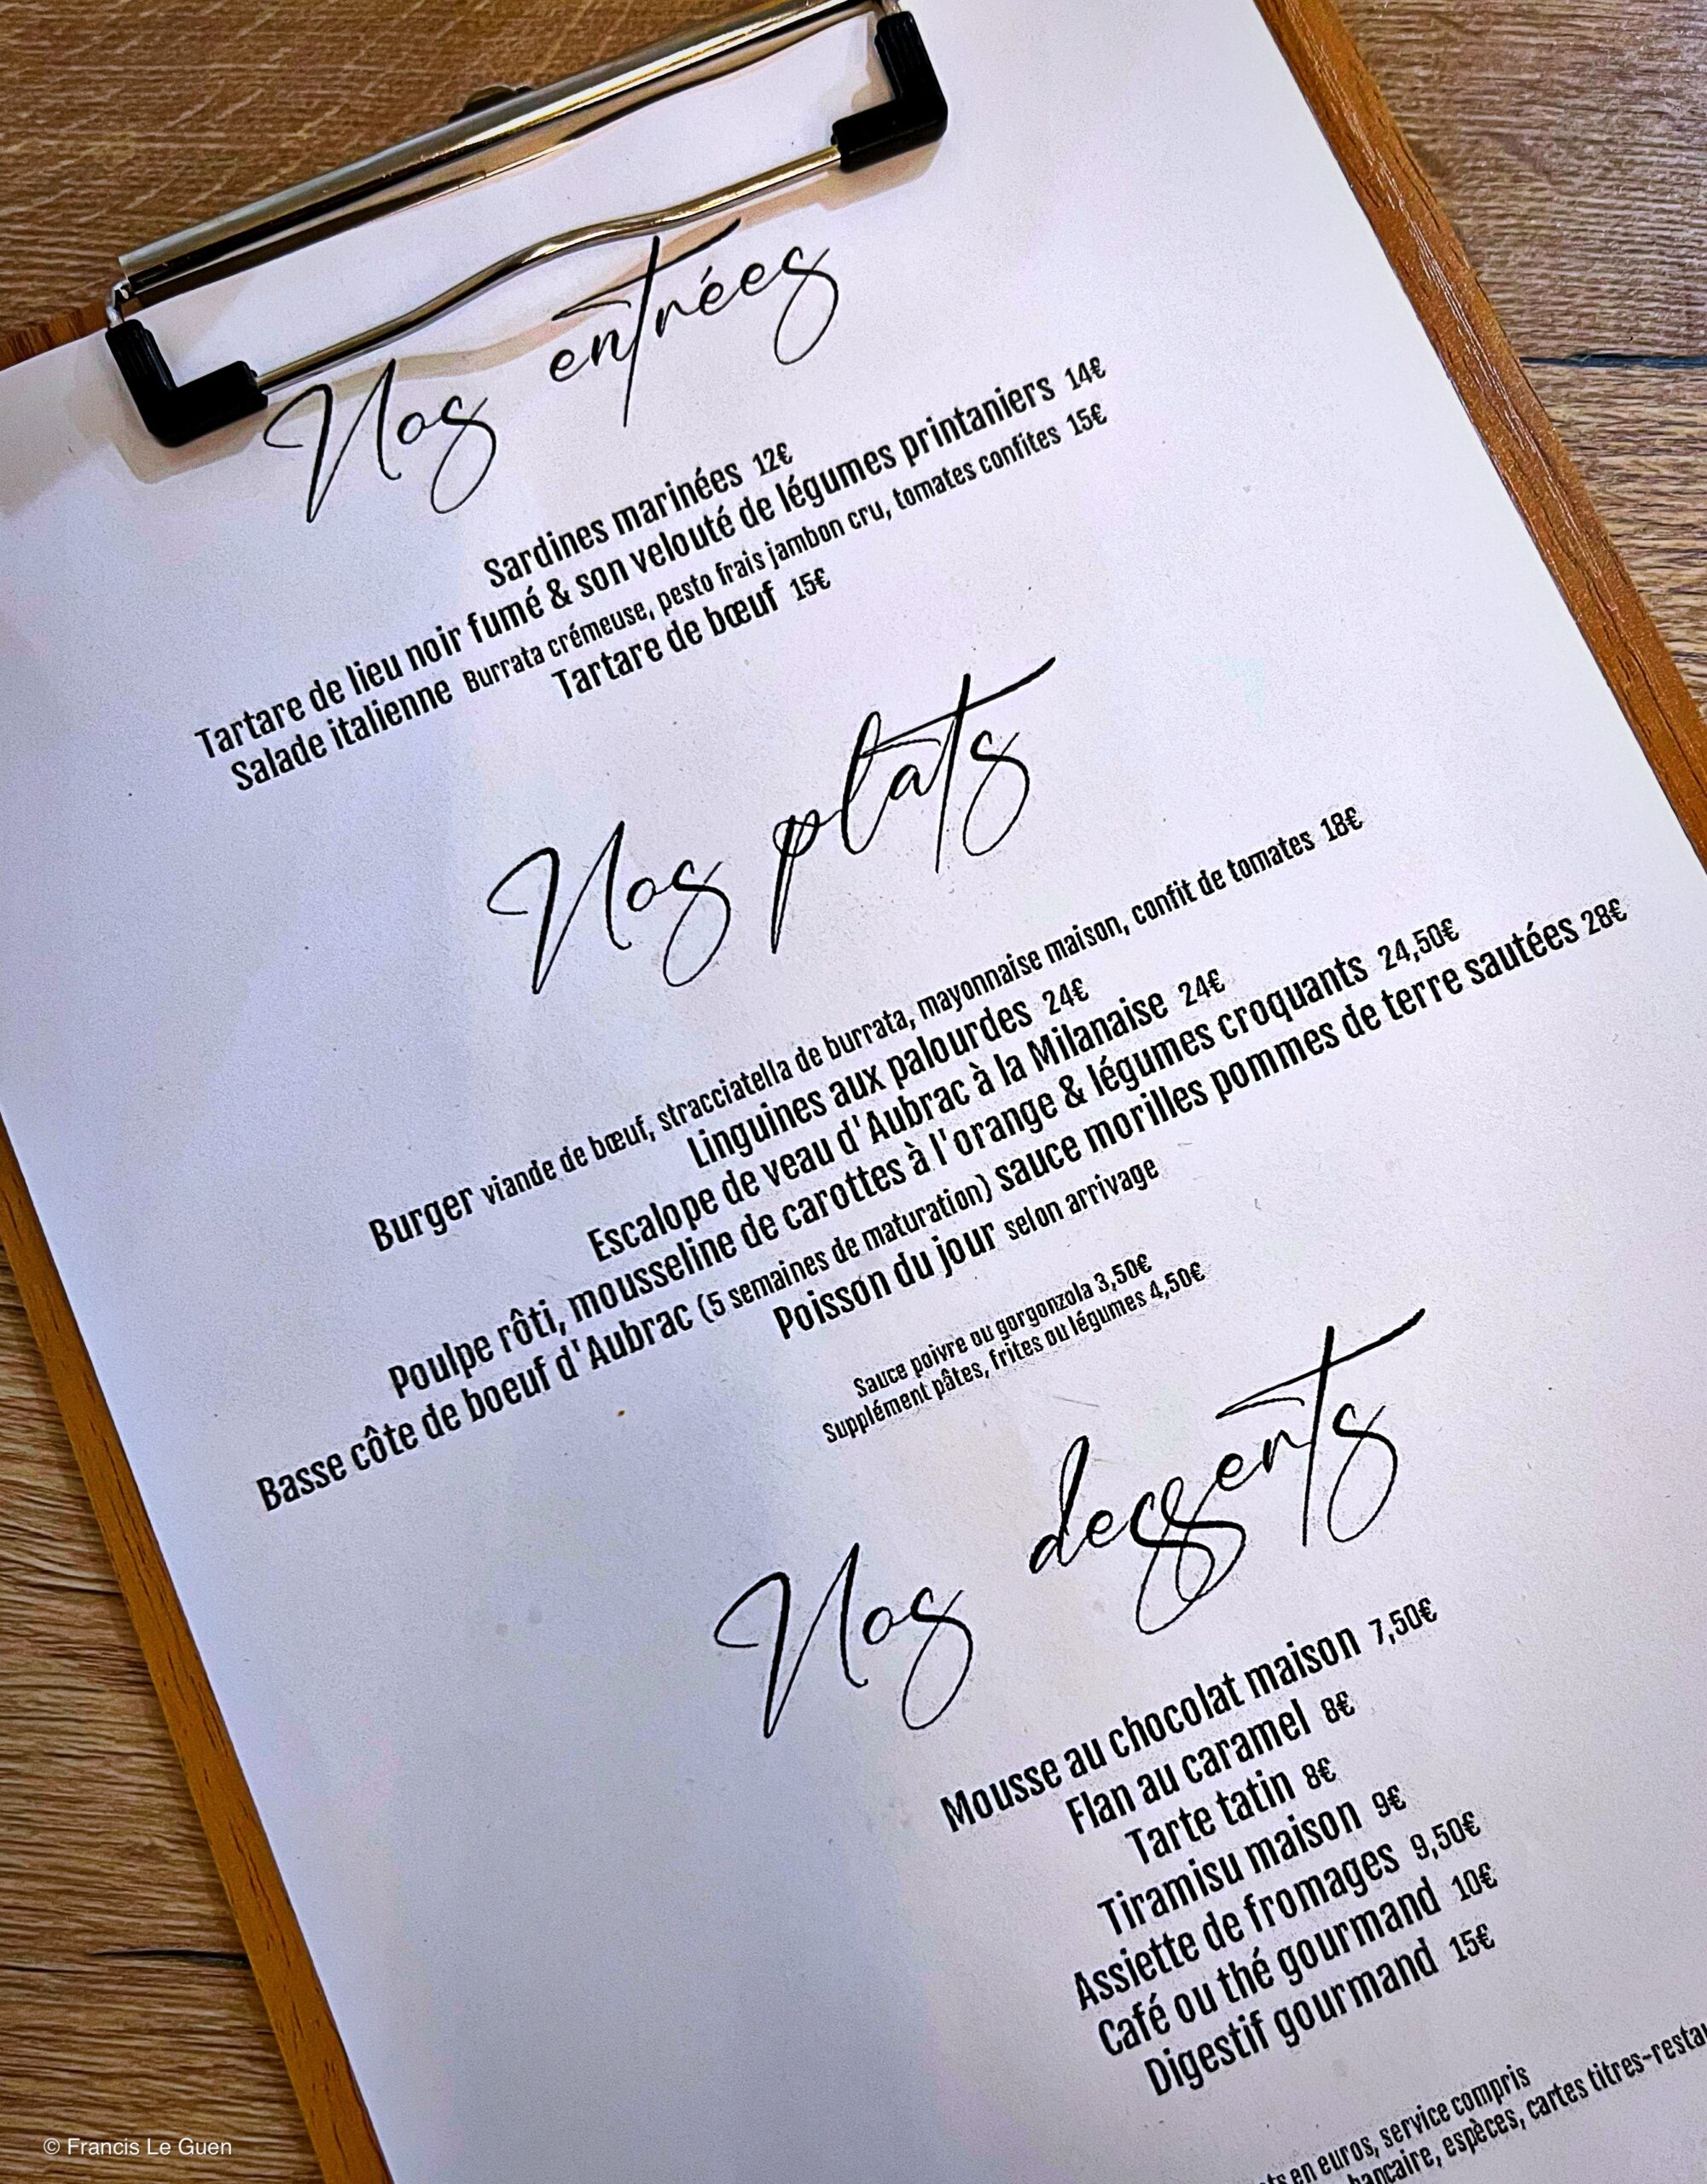 Nos entrées
Sardines marinées 12€
Tartare de lieu noir fumé & son velouté de légumes printaniers 14€
Salade italienne Burrata crémeuse, pesto frais jambon cru, tomates confites 15€
Tartare de bœuf 15€
Nos plats
Burger viande de bœuf, stracciatella de burrata, mayonnaise maison, confit de tomates 18€
Linguines aux palourdes 24€
Escalope de veau d'Aubrac à la Milanaise 24€
Poulpe rôti, mousseline de carottes à l'orange & légumes croquants 24,50€
Basse côte de boeuf d'Aubrac (5 semaines de maturation) sauce morilles pommes de terre sautées 28€
Poisson du jour selon arrivage
Sauce poivre ou gorgonzola 3,50€
Supplément pâtes, frites ou légumes 4,50€
Nos desserts
Mousse au chocolat maison 7,50€
Flan au caramel 8€
Tarte tatin 8€
Tiramisu maison 9€
Assiette de fromages 9,50€
Café ou thé gourmand 10€
Digestif gourmand 15€
en euros, service compris
espèces, cartes titres-resta
© Francis Le Guen